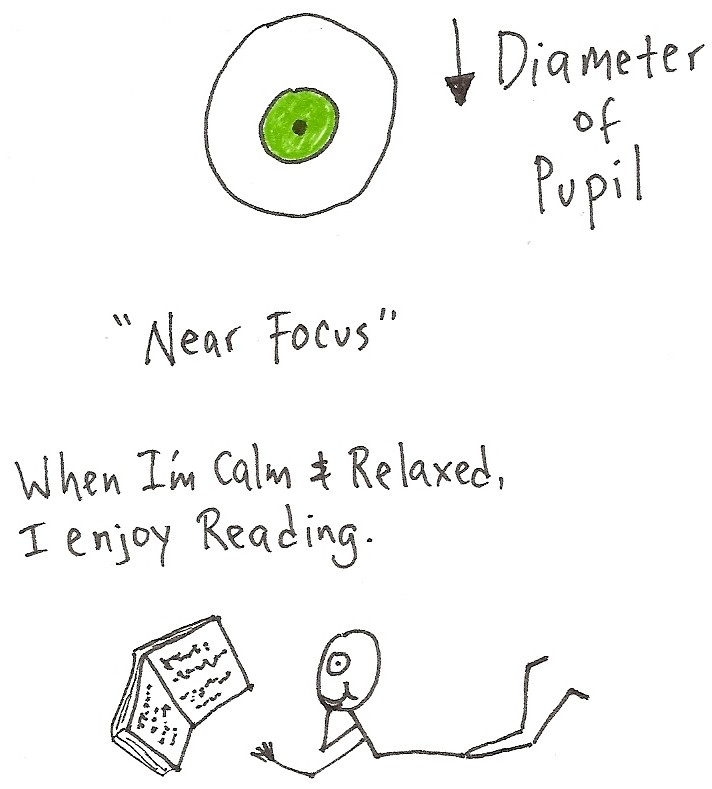 ↓ Diameter
of
Pupil
"Near Focus"
When I'm Calm & Relaxed,
I enjoy Reading.